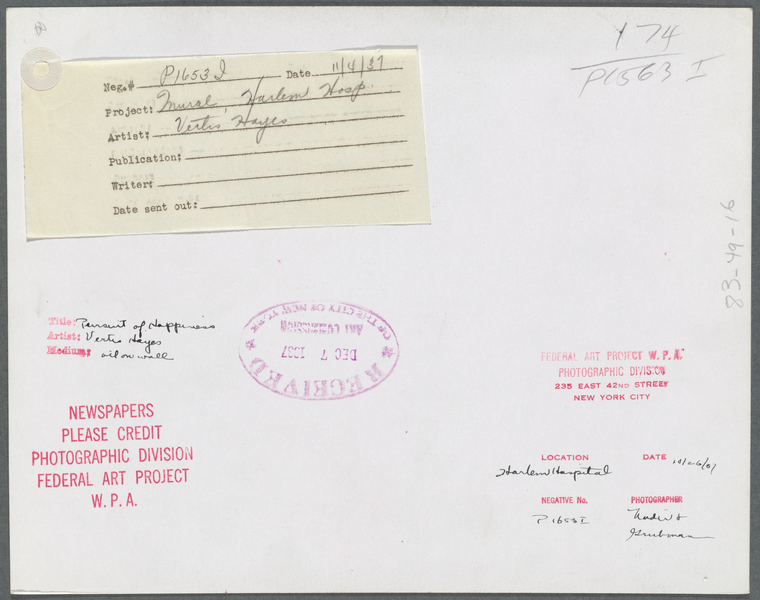 Neg.# P1653I Date 11/4/37
Project: Mural, Harlem Hosp.
Artist: Vertis Hayes
Publication:
Writer:
Date sent out:
174
P1563 I
83-49-16
Title: Pursuit of Happiness
Artist: Vertis Hayes
Medium: oil on wall
RECEIVED
DEC 7 1937
ART COMMISSION
OF THE CITY OF NEW YORK
NEWSPAPERS
PLEASE CREDIT
PHOTOGRAPHIC DIVISION
FEDERAL ART PROJECT
W.P.A.
FEDERAL ART PROJECT W.P.A.
PHOTOGRAPHIC DIVISION
235 EAST 42ND STREET
NEW YORK CITY
LOCATION DATE
Harlem Hospital
NEGATIVE No. PHOTOGRAPHER
P1653I